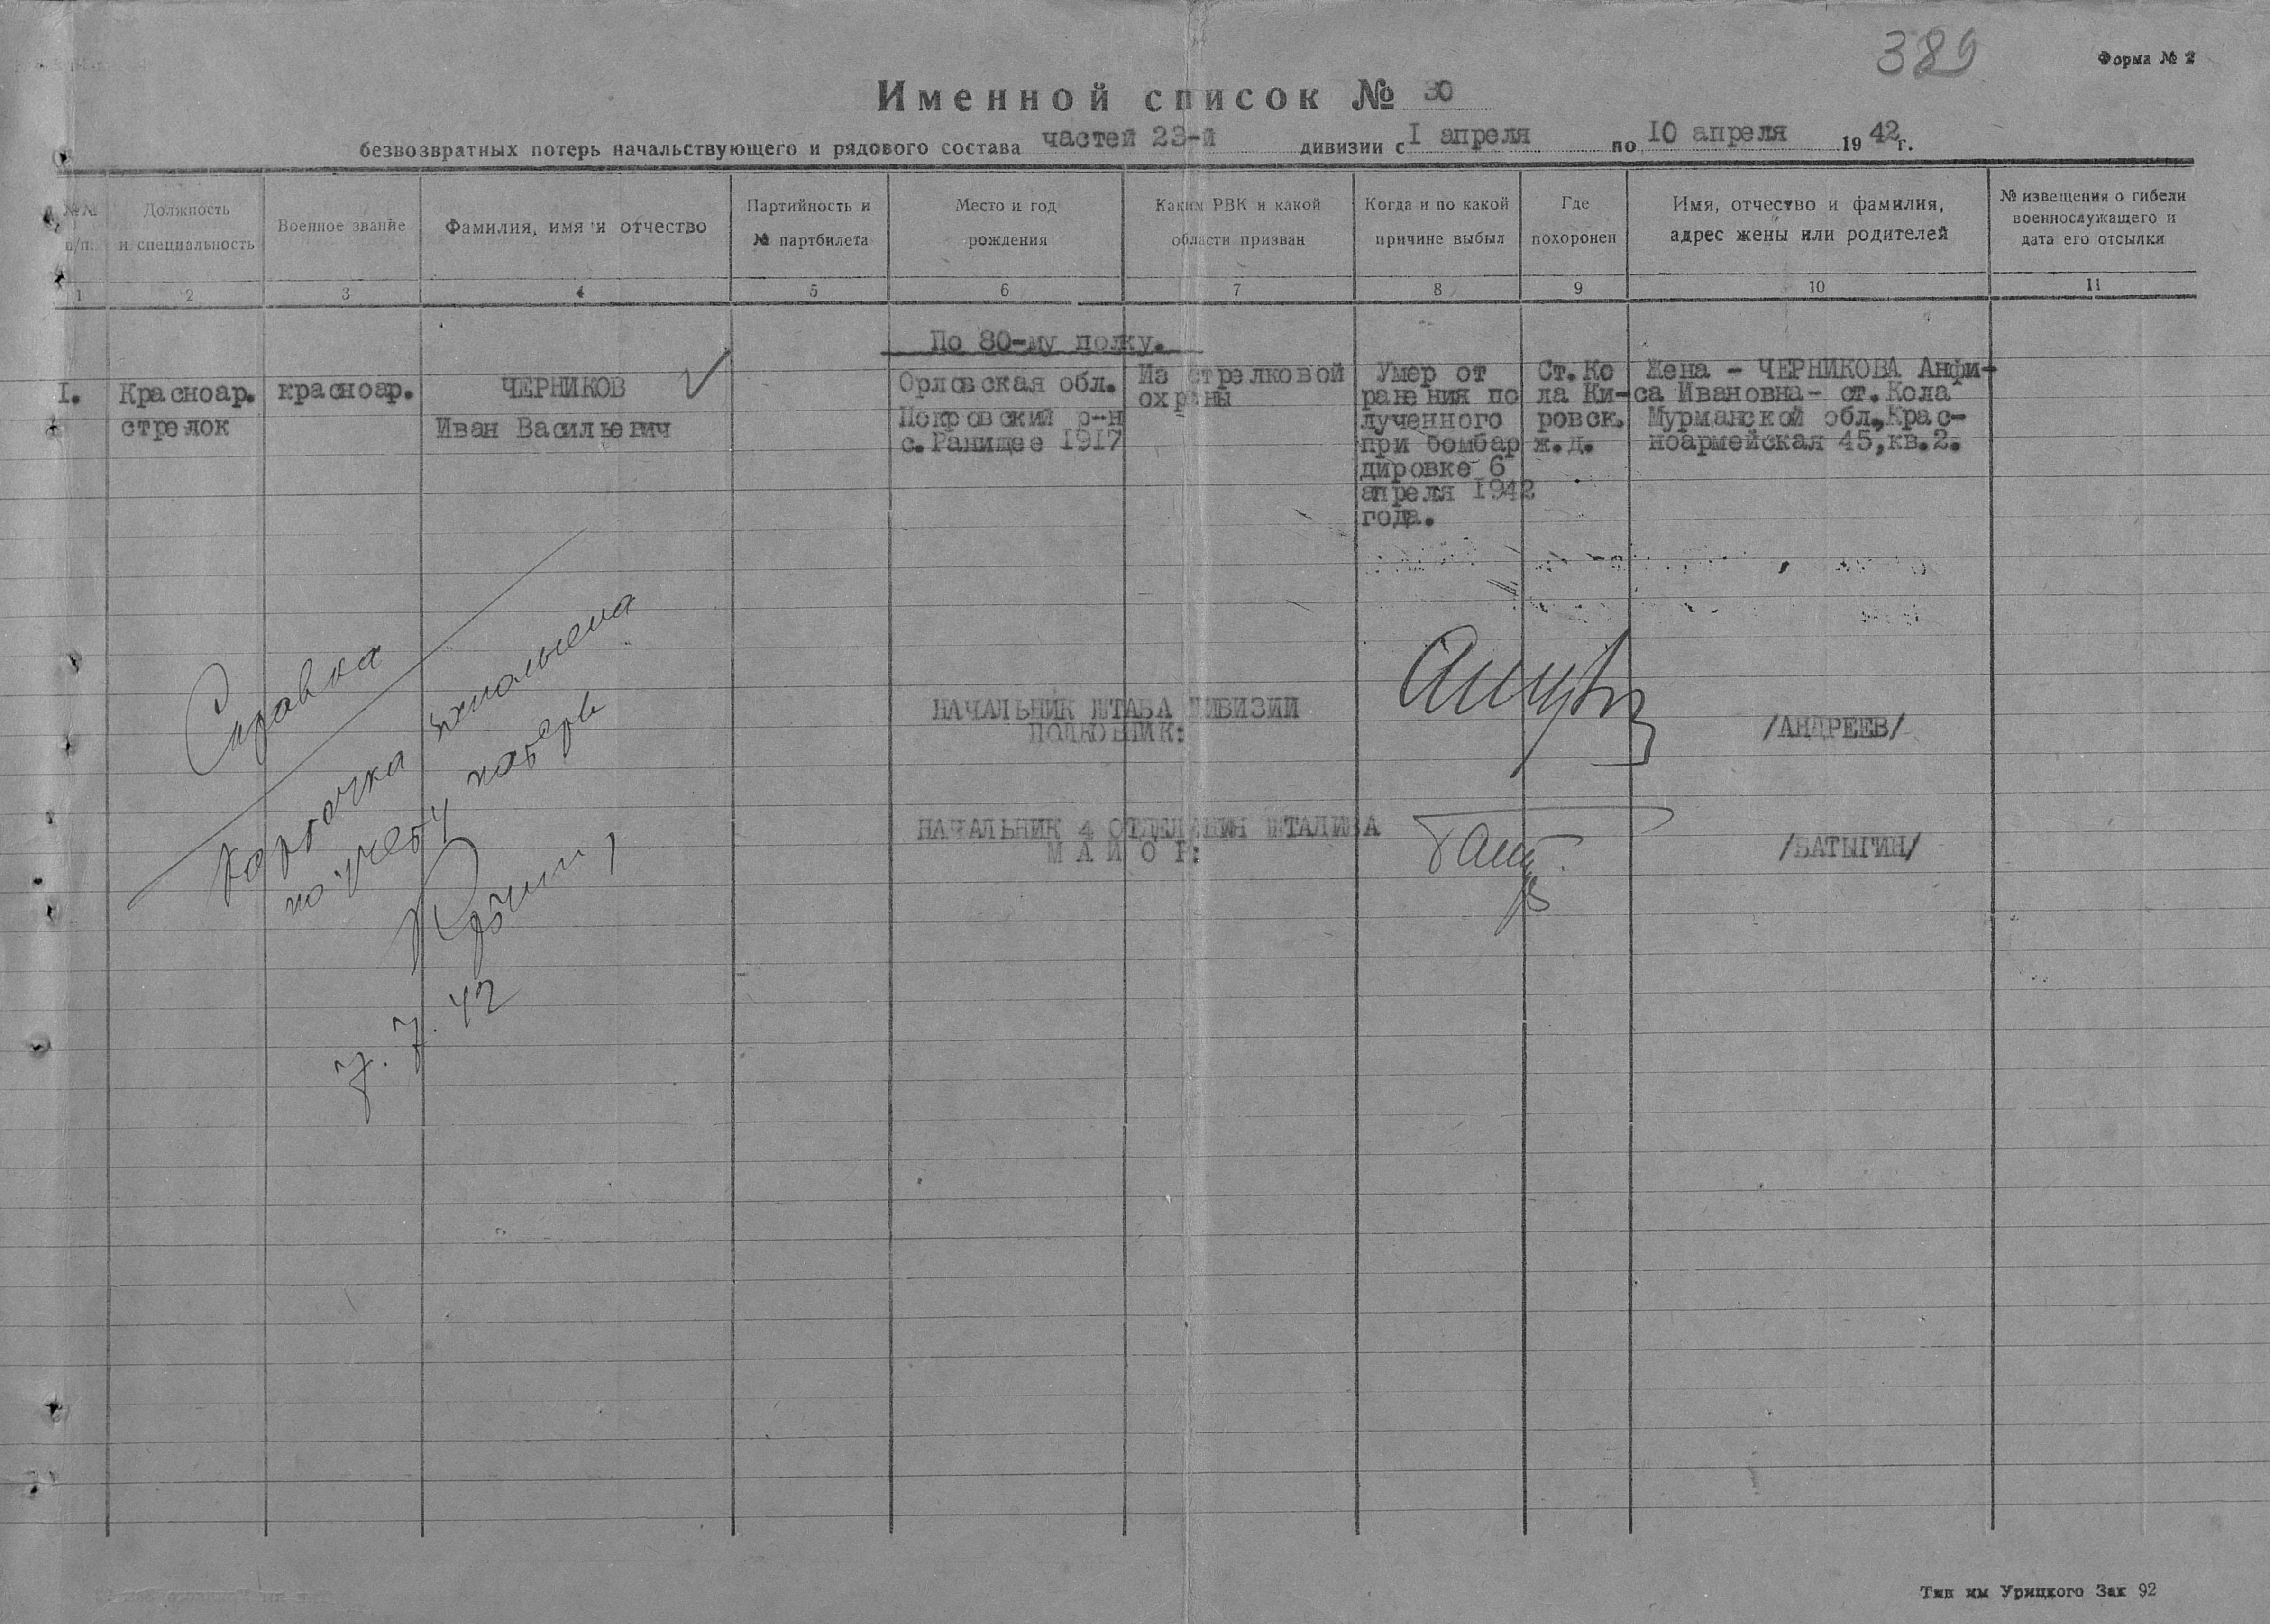 389
Форма № 2
Именной список № 30
безвозвратных потерь начальствующего и рядового состава частей 23-й дивизии с 1 апреля по 10 апреля 1942 г.
№№ п/п.
Должность и специальность
Военное звание
Фамилия, имя и отчество
Партийность и № партбилета
Место и год рождения
Каким РВК и какой области призван
Когда и по какой причине выбыл
Где похоронен
Имя, отчество и фамилия, адрес жены или родителей
№ извещения о гибели военнослужащего и дата его отсылки
1 2 3 4 5 6 7 8 9 10 11
По 80-му полку.
I.
Красноар.
стрелок
красноар.
ЧЕРНИКОВ
Иван Васильевич
Орловская обл.
Покровский р-н
с.Ранищее 1917
Из стрелковой
охраны
Умер от
ранения по
лученного
при бомбар
дировке 6
апреля 1942
года.
Ст.Ко
ла Ки-
ровск.
ж.д.
Жена - ЧЕРНИКОВА Анфи-
са Ивановна- ст.Кола
Мурманской обл.,Крас-
ноармейская 45,кв.2.
НАЧАЛЬНИК ШТАБА ДИВИЗИИ
ПОЛКОВНИК:
/АНДРЕЕВ/
НАЧАЛЬНИК 4 ОТДЕЛЕНИЯ ШТАДИВА
МАЙОР:
/БАТЫГИН/
Справка
Карточка
по учету потерь
7.7.42
Тип им Урицкого Зак 92